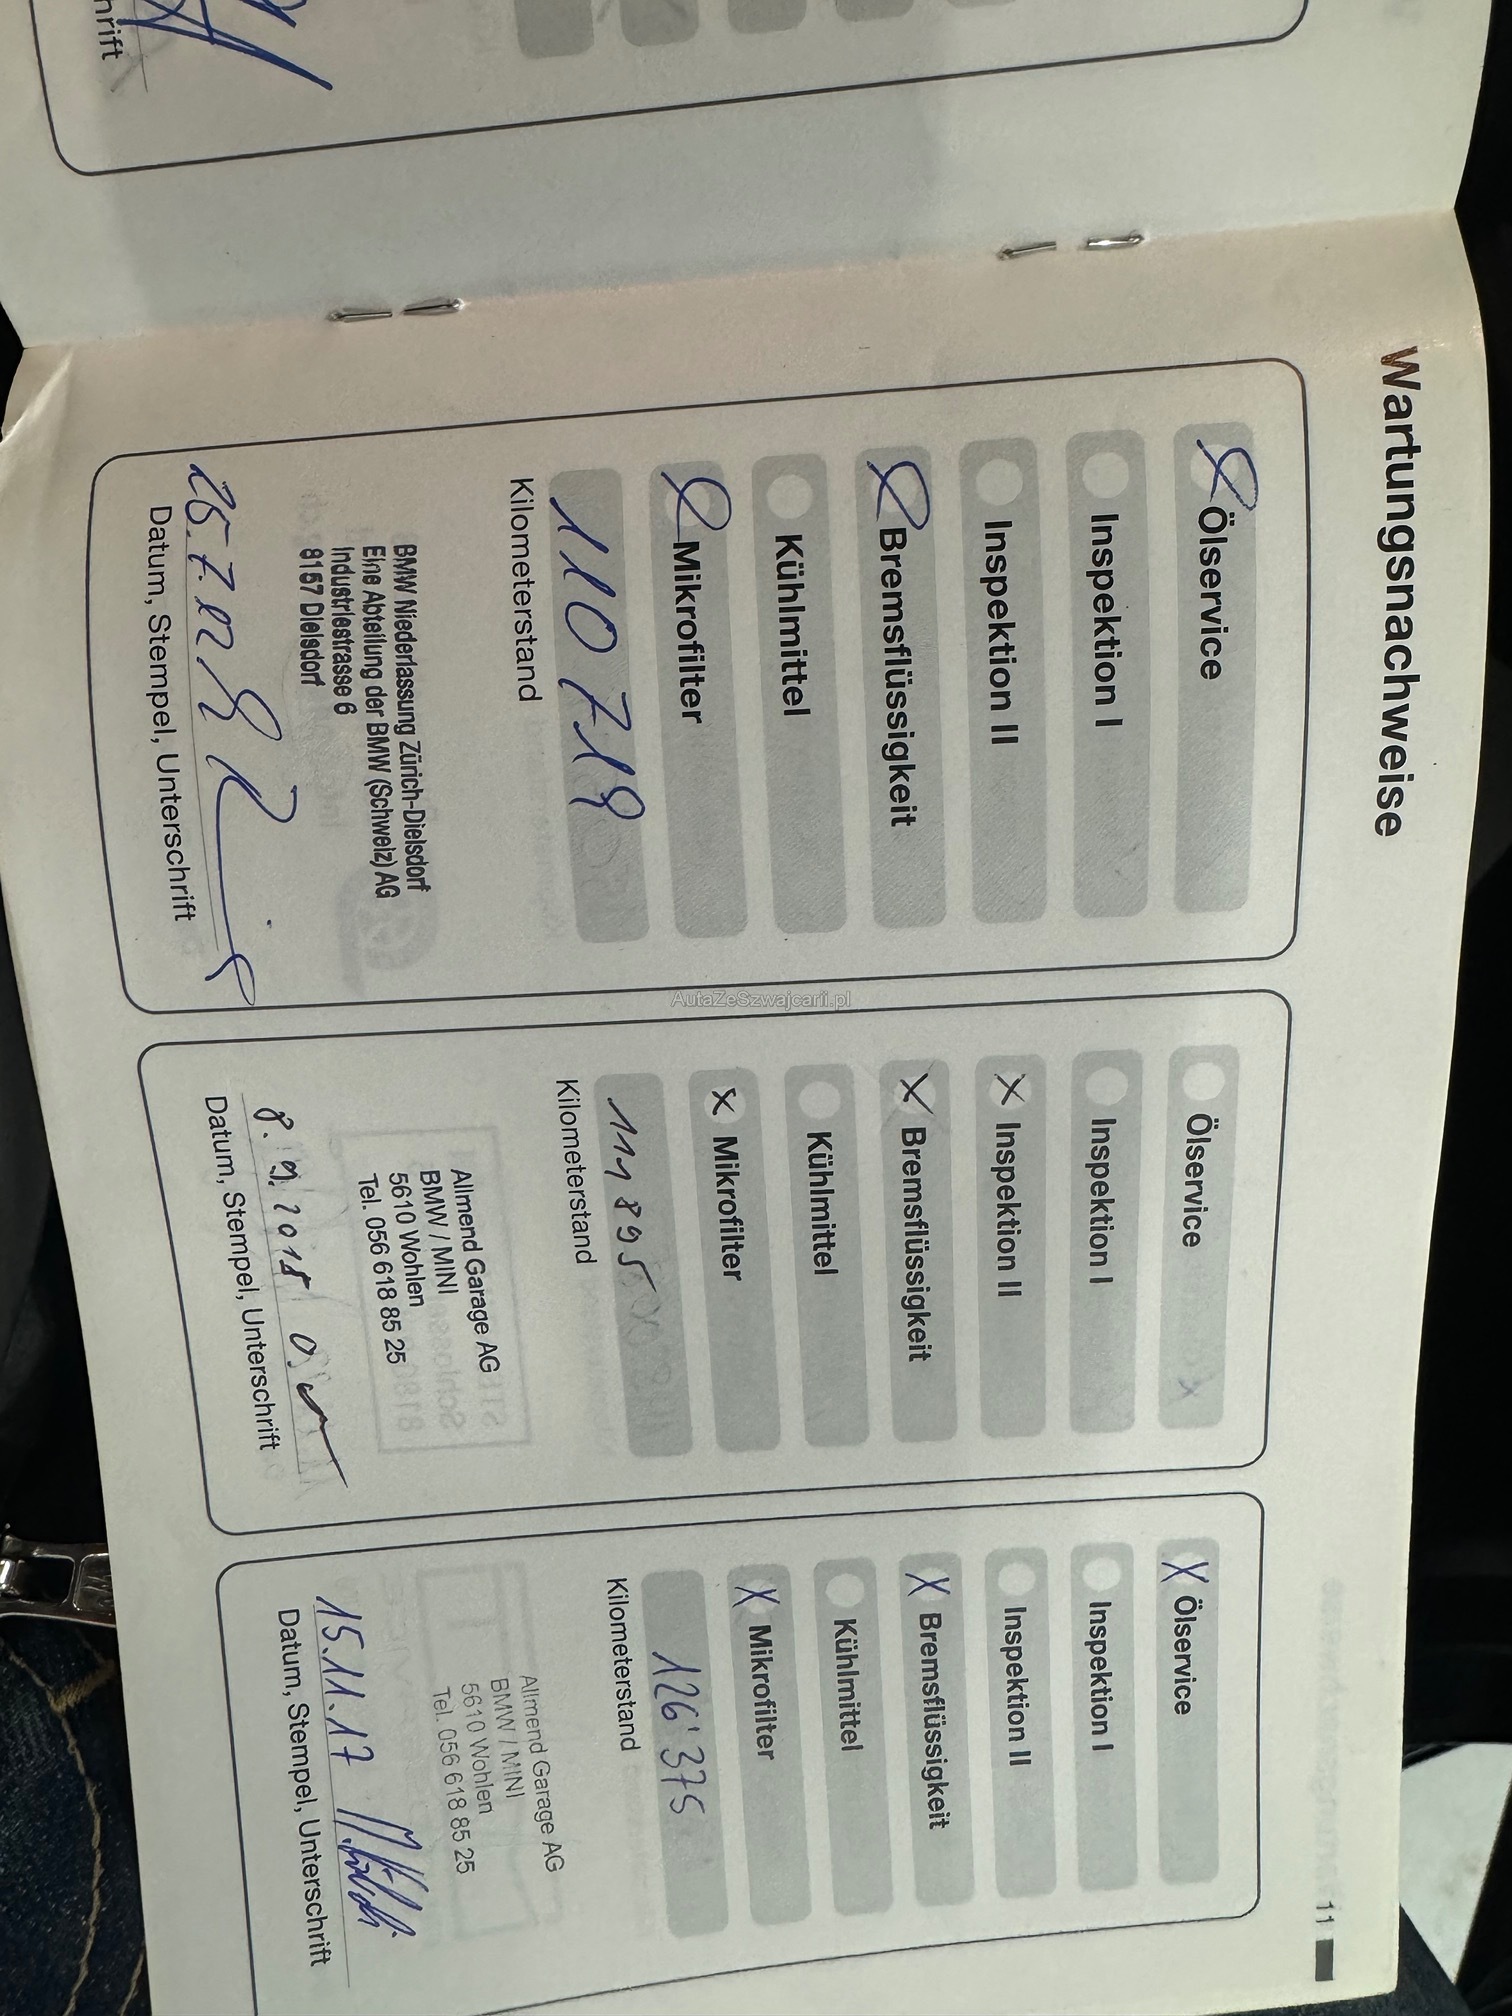 hrift
Wartungsnachweise
Ölservice
Inspektion I
Inspektion II
Bremsflüssigkeit
Kühlmittel
Mikrofilter
110 719
Kilometerstand
BMW Niederlassung Zürich-Dielsdorf
Eine Abteilung der BMW (Schweiz) AG
Industriestrasse 6
8157 Dielsdorf
Datum, Stempel, Unterschrift
X Ölservice
Inspektion I
X Inspektion II
X Bremsflüssigkeit
Kühlmittel
X Mikrofilter
Kilometerstand
Allmend Garage AG
BMW / MINI
5610 Wohlen
Tel. 056 618 85 25
Datum, Stempel, Unterschrift
X Ölservice
Inspektion I
Inspektion II
X Bremsflüssigkeit
Kühlmittel
X Mikrofilter
126'375
Kilometerstand
Allmend Garage AG
BMW / MINI
5610 Wohlen
Tel. 056 618 85 25
15.11.17
Datum, Stempel, Unterschrift
11
AutaZeSzwajcarii.pl